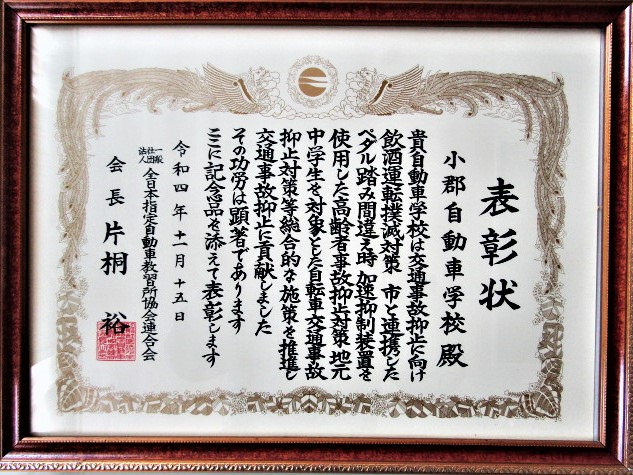 表彰状
小郡自動車学校 殿
貴自動車学校は交通事故抑止に向け
飲酒運転撲滅対策 市と連携した
ペダル踏み間違え時 加速抑制装置を
使用した高齢者事故抑止対策 地元
中学生を対象とした自転車交通事故
抑止対策等総合的な施策を推進し
交通事故抑止に貢献しました
その功労は顕著であります
ここに記念品を添えて表彰します
令和四年十一月十五日
一般社団法人 全日本指定自動車教習所協会連合会
会長 片桐 裕